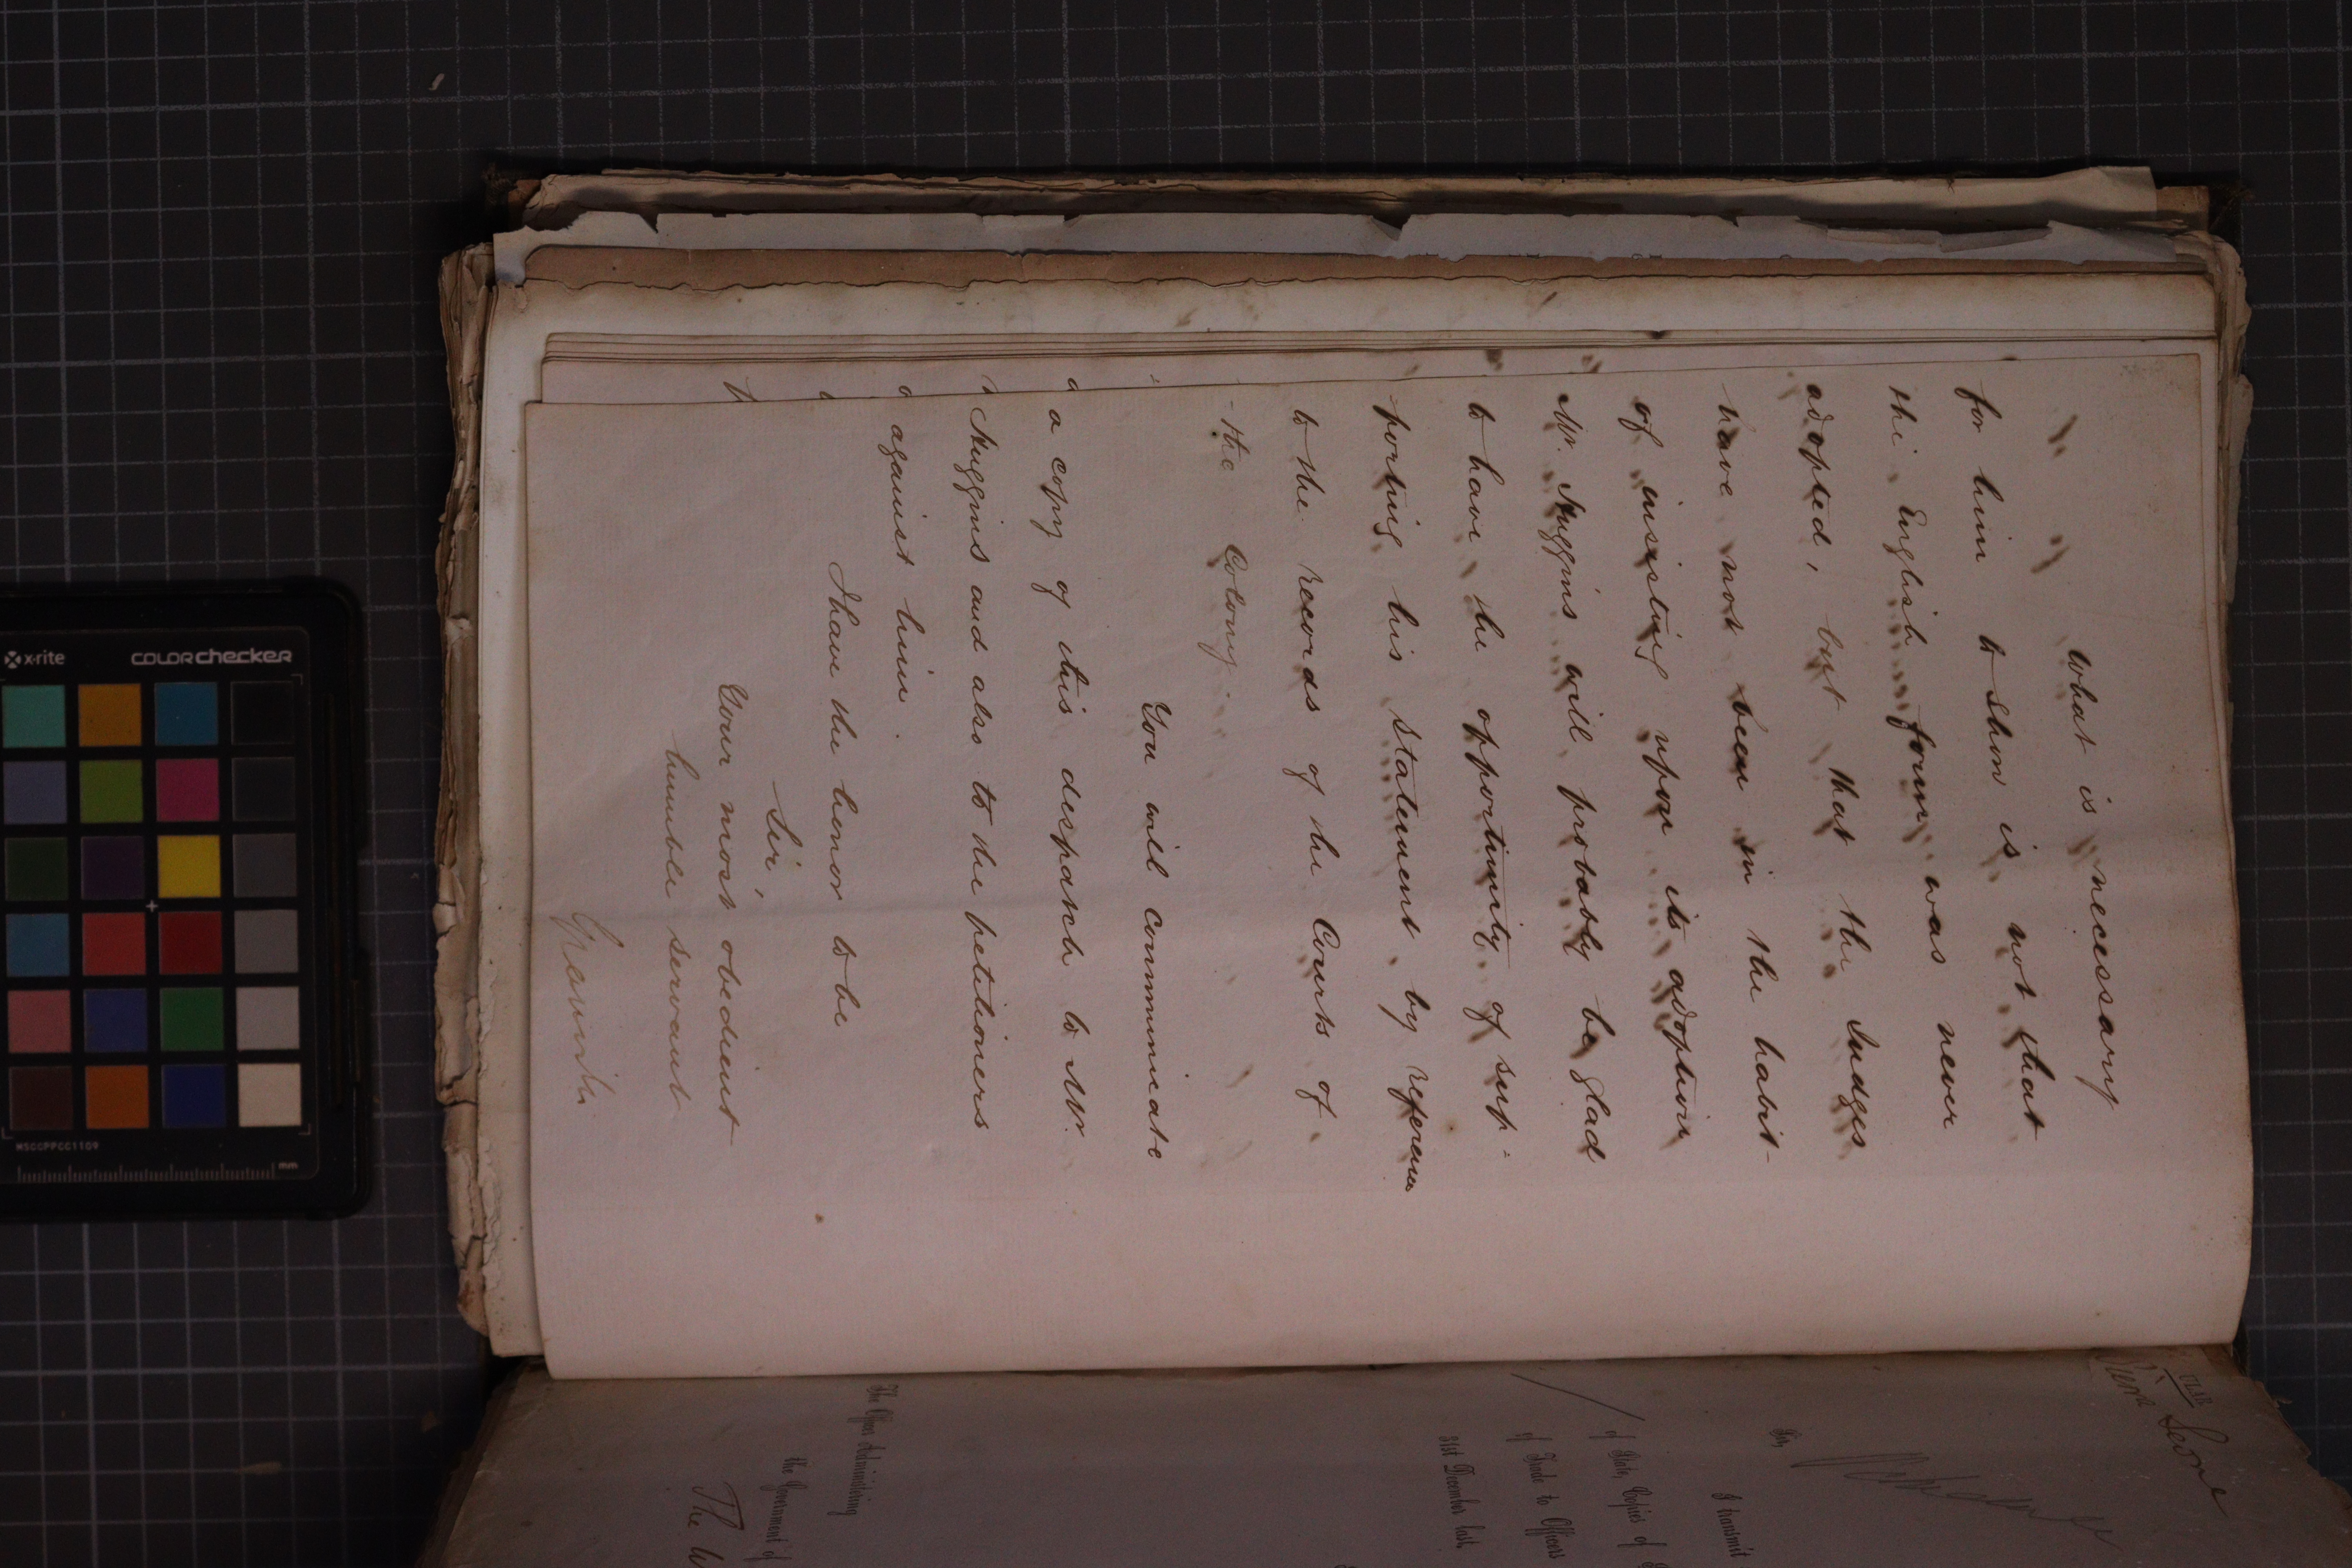 What is necessary
for him to shew is not that
the English form was never
adopted, but that the Judges
have not been in the habit
of insisting upon its adoption
Mr. Huggins will probably be glad
to have the opportunity of sup-
porting his statement, by reference
to the records of the Courts of
the Colony.
You will communicate
a copy of this despatch to Mr.
Huggins and also to the petitioners
against him.
I have the honor to be
Sir,
Your most obedient
humble servant
Granville
Leone
Sir,
I transmit
of State, Copies of
of Trade to Officers
31st December last.
The Officer Administering
the Government of
The
x-rite
COLORchecker
MSCCPPCC1109
mm